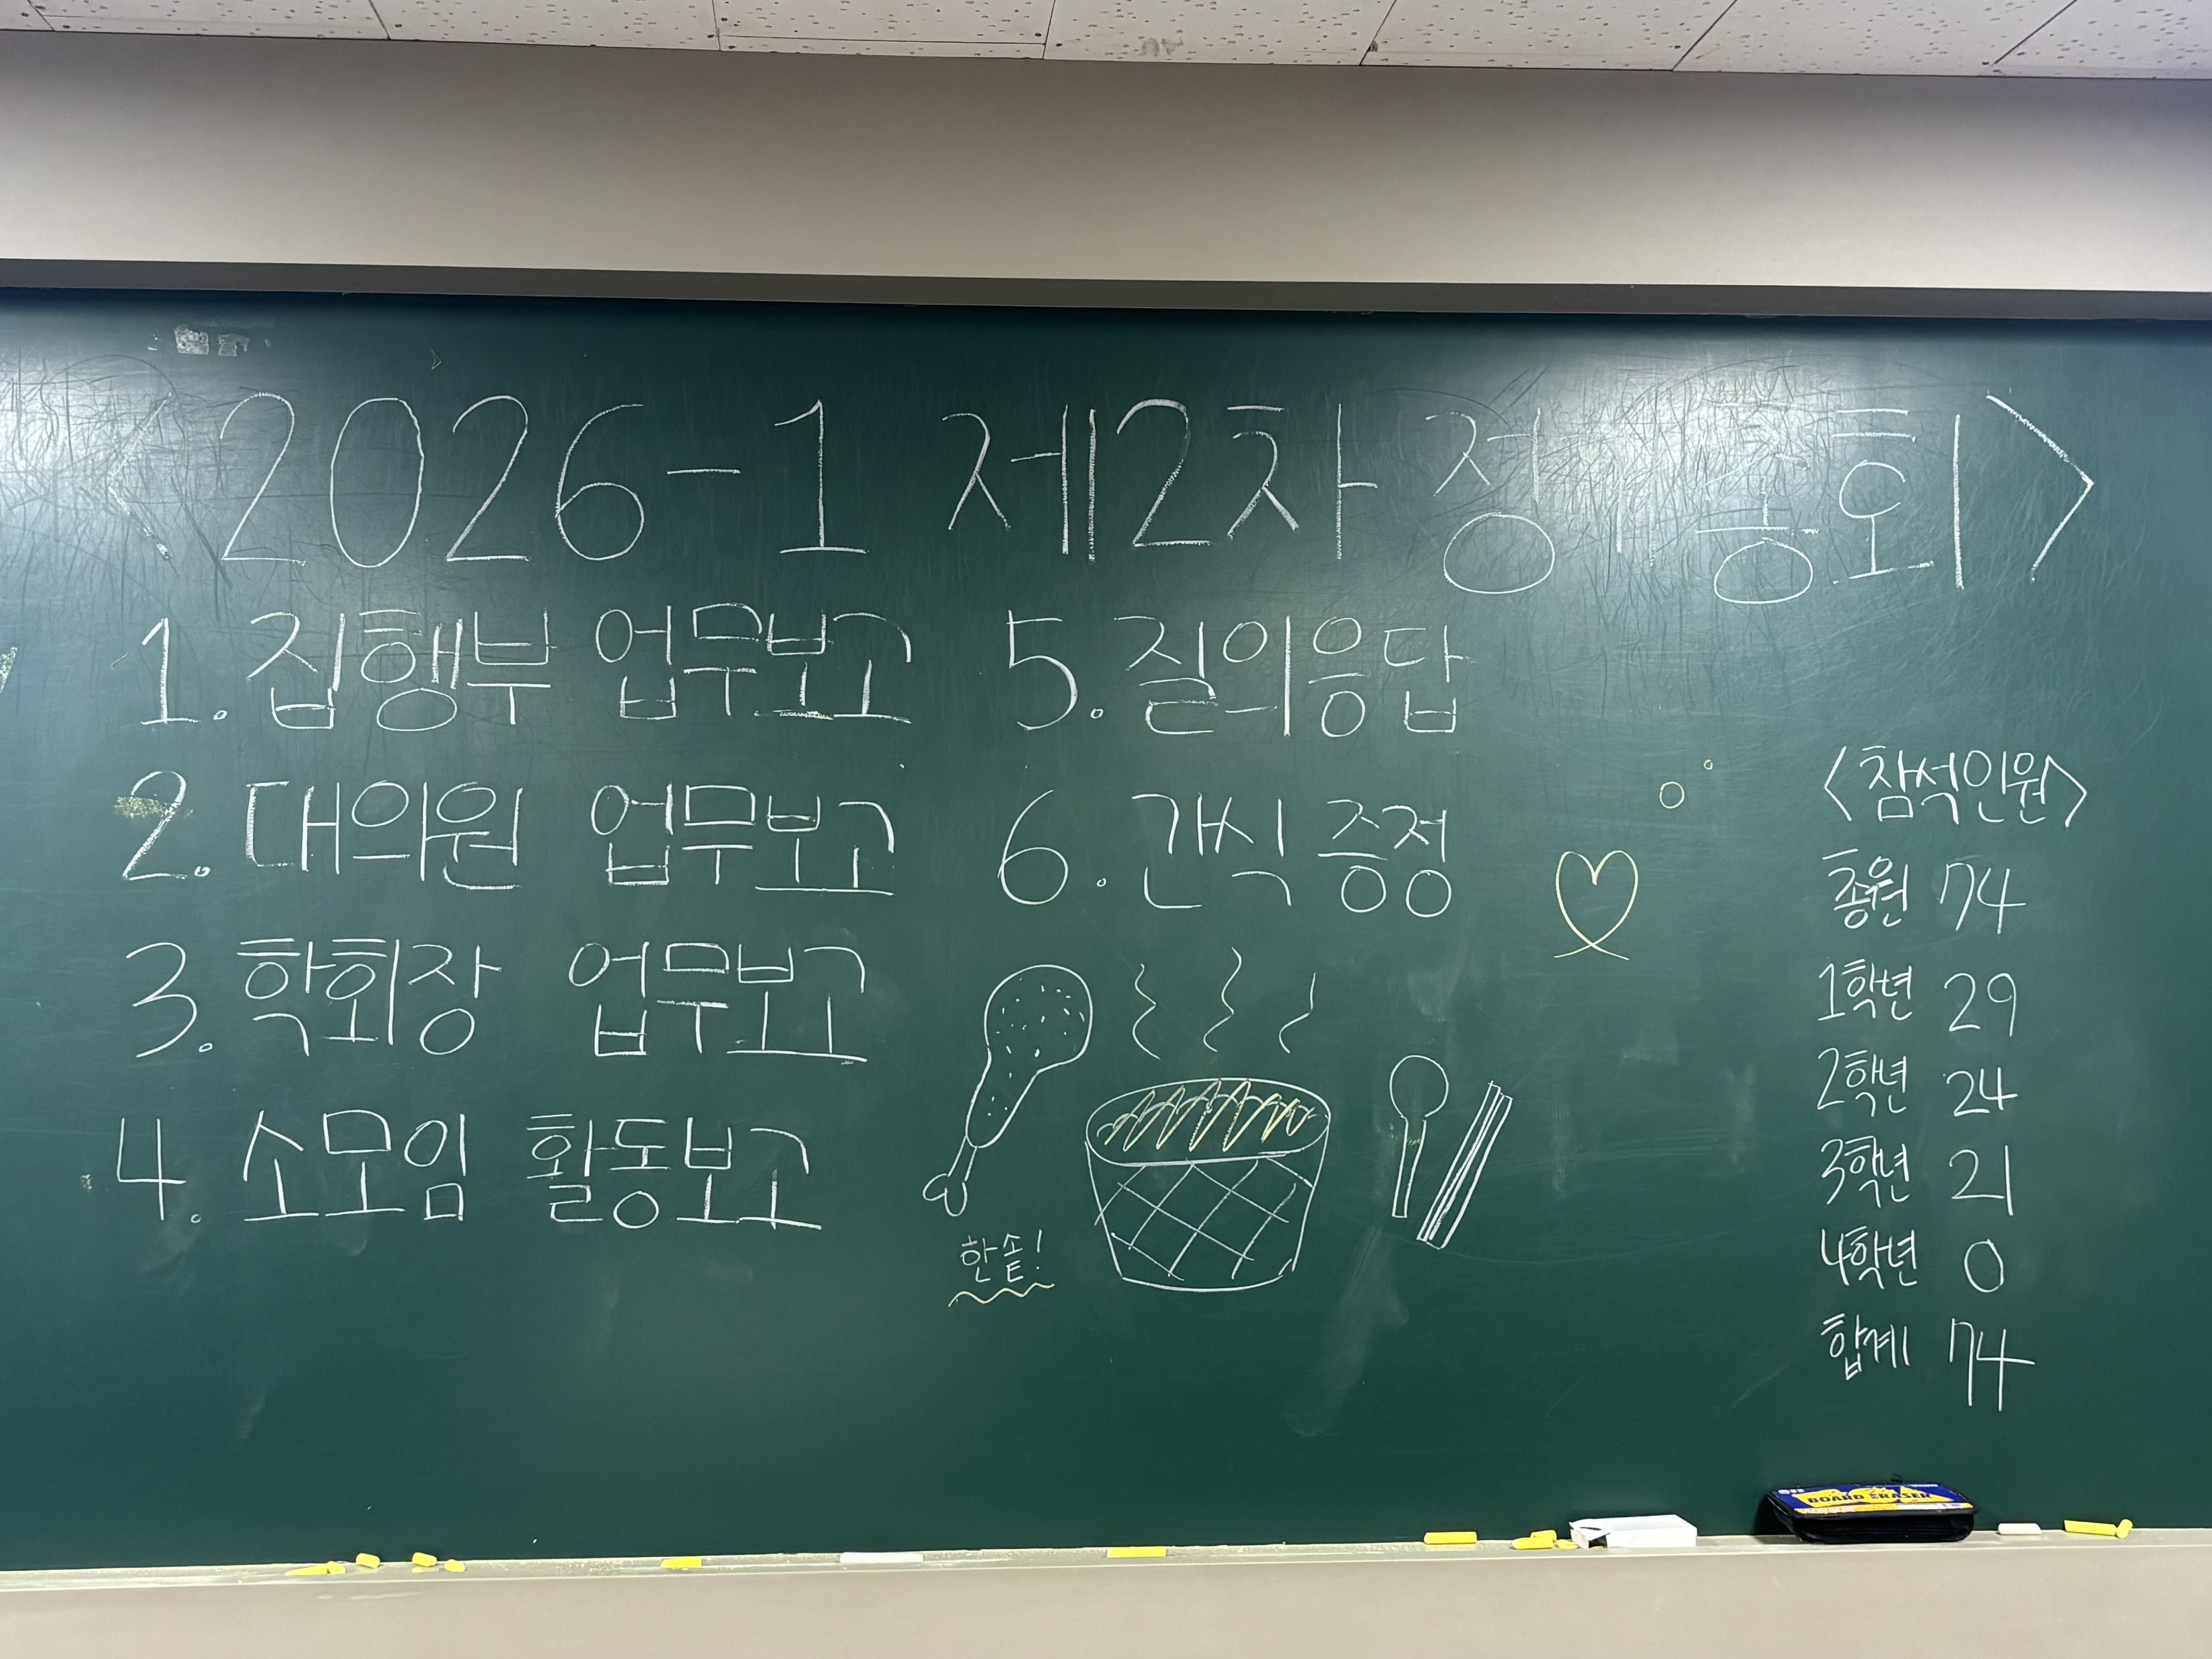 <2026-1 제2차 정기총회>
1. 집행부 업무보고
2. 대의원 업무보고
3. 학회장 업무보고
4. 소모임 활동보고
5. 질의응답
6. 간식 증정
한솥!
<참석인원>
총원 74
1학년 29
2학년 24
3학년 21
4학년 0
합계 74
BOARD ERASER